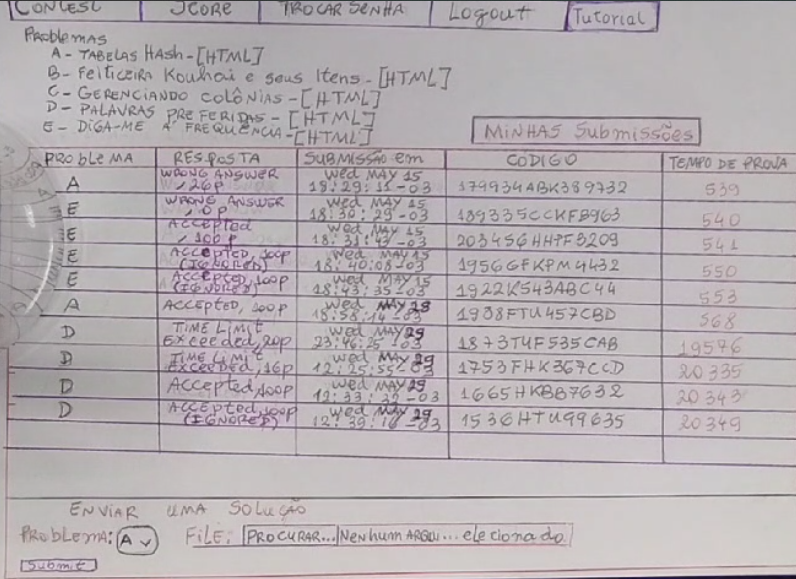 CONTEST SCORE TROCAR SENHA Logout Tutorial
Problemas
A - TABELAS HASH - [HTML]
B - Feiticeira Kouhai e seus Itens - [HTML]
C - GERENCIANDO COLÔNIAS - [HTML]
D - PALAVRAS PREFERIDAS - [HTML]
E - DIGA-ME A FREQUÊNCIA - [HTML]
MINHAS Submissões
PROBLEMA RESPOSTA SUBMISSÃO em CÓDIGO TEMPO DE PROVA
A WRONG ANSWER, 26p Wed MAY 15 18:29:11-03 179934ABK389732 539
E WRONG ANSWER, 0p Wed MAY 15 18:30:29-03 189335CCKFB963 540
E Accepted, 100p Wed MAY 15 18:31:43-03 203456HHPF3209 541
E ACCEPTED, 100p (IGNORED) Wed MAY 15 18:40:08-03 19566FKPM4432 550
E ACCEPTED, 100p (IGNORED) Wed MAY 15 18:43:35-03 1922K543ABC44 553
A ACCEPTED, 100p Wed MAY 29 18:58:14-03 1938FTU457CBD 568
D TIME LIMIT Exceeded, 20p Wed MAY 29 23:46:25-03 1873TUF535CAB 19576
D TIME LIMIT EXCEEDED, 16p Wed MAY 29 12:25:55-03 1753FHK367CCD 20335
D Accepted, 100p Wed MAY 29 12:33:39-03 1665HKBB7632 20343
D ACCEPTED, 100p (IGNORED) Wed MAY 29 12:39:16-03 1536HTU99635 20349
ENVIAR UMA SOLUÇÃO
PROBLEMA: A FILE: PROCURAR... Nenhum ARQU... elecionado
Submit